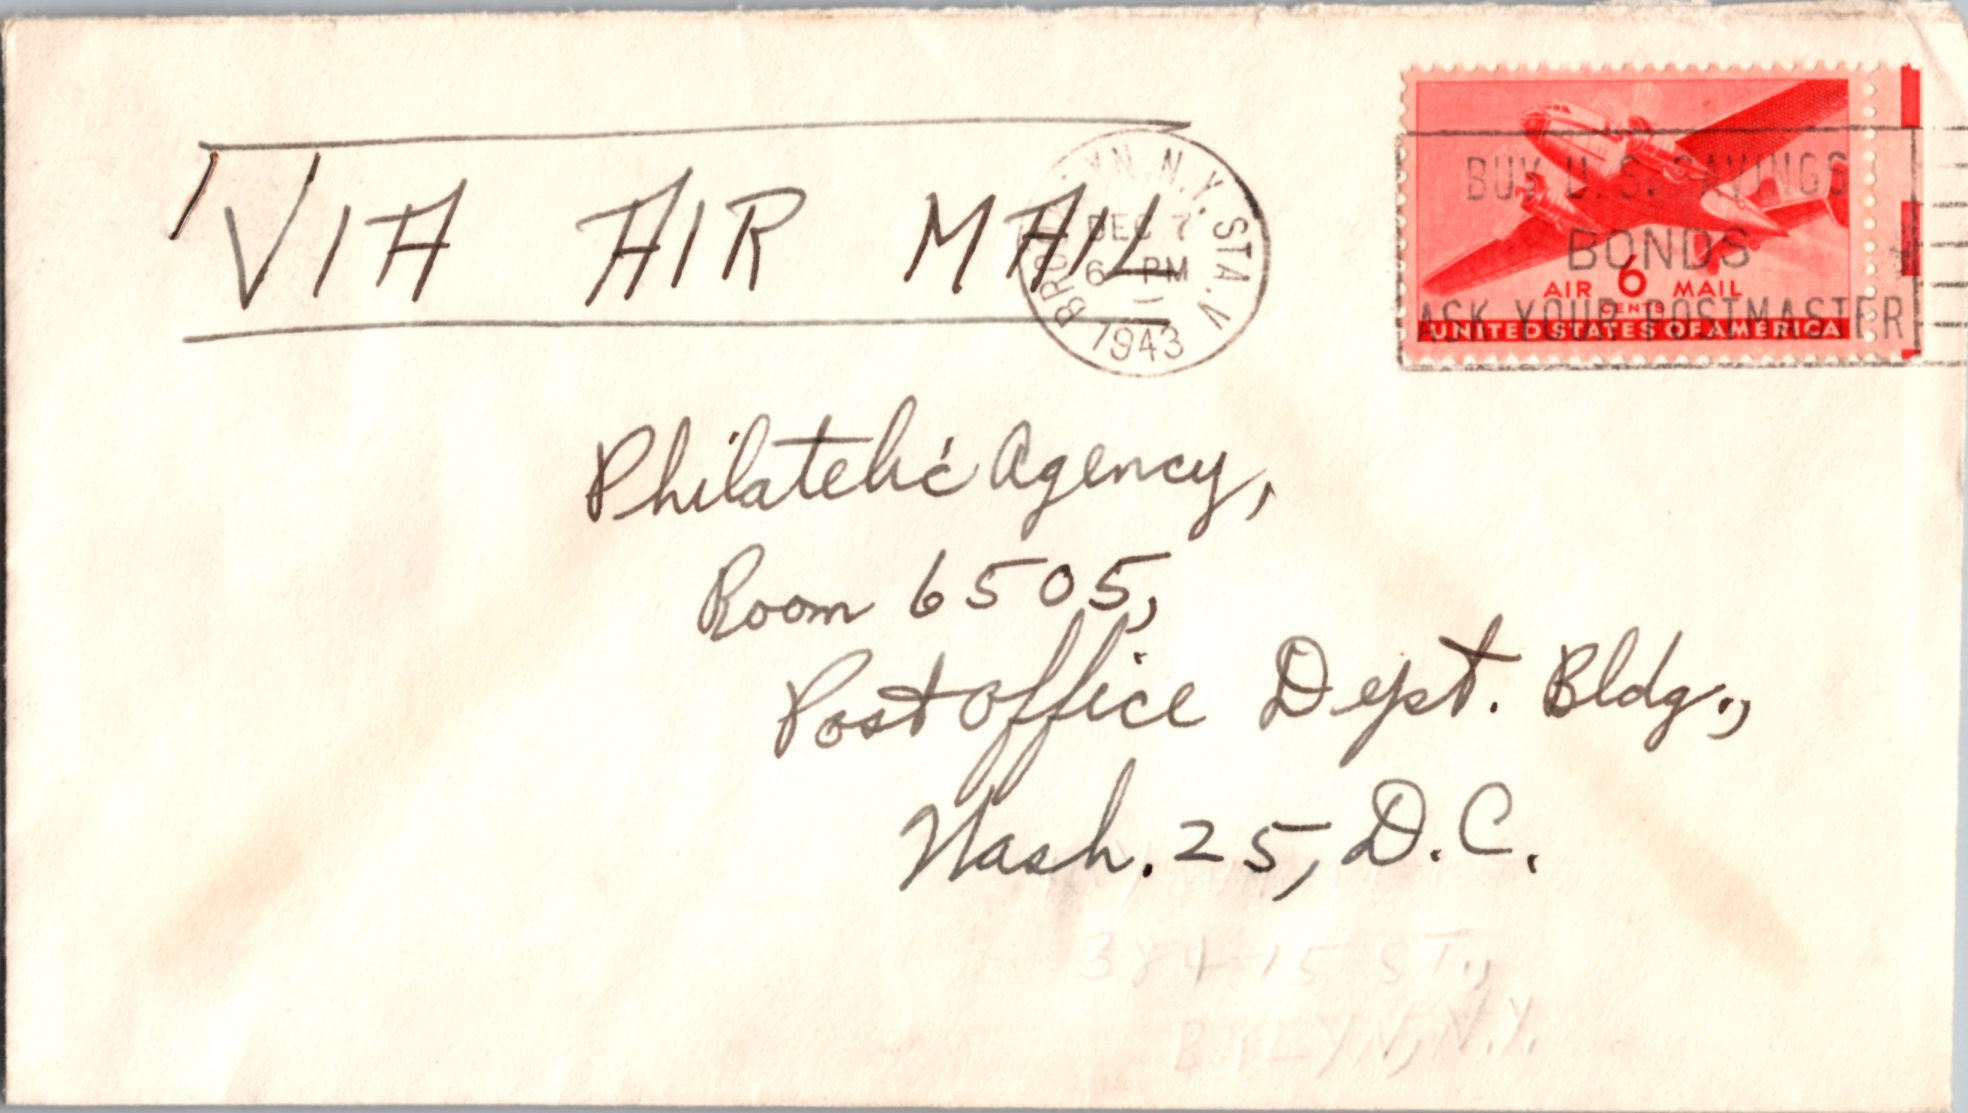 VIA AIR MAIL
BROOKLYN, N.Y. STA. V
DEC 7
6 PM
1943
BUY U.S. SAVINGS
BONDS
ASK YOUR POSTMASTER
6
AIR MAIL
CENTS
UNITED STATES OF AMERICA
Philatelic Agency,
Room 6505,
Post Office Dept. Bldg.,
Wash. 25, D.C.
384-15 ST.,
BKLYN, N.Y.